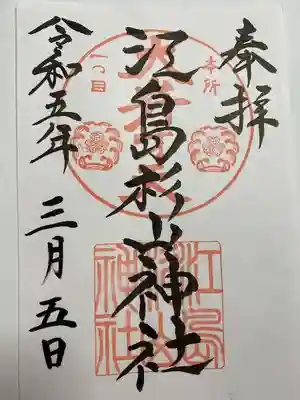 奉拝
本所
一つ目
江島杉山神社
令和五年
三月五日
江島
杉山
神社